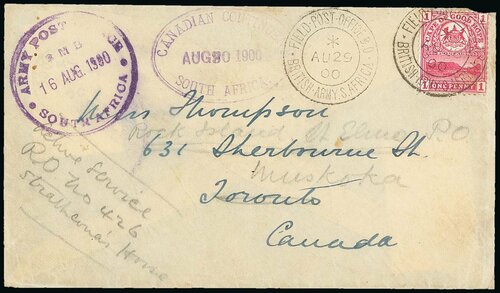 ARMY POST OFFICE
16 AUG 1900
SOUTH AFRICA
CANADIAN
AUG 30 1900
SOUTH AFRICA
FIELD-POST-OFFICE
*
AU 29
00
BRITISH-ARMY.S.AFRICA
FIELD-POST
00
BRITISH
CAPE OF GOOD HOPE
1 ONE PENNY 1
Miss Thompson
Rock Island St Elmo P.O
631 Sherbourne St.
Muskoka
Toronto
Canada
Active Service
P.O No 426
Strathcona's Horse